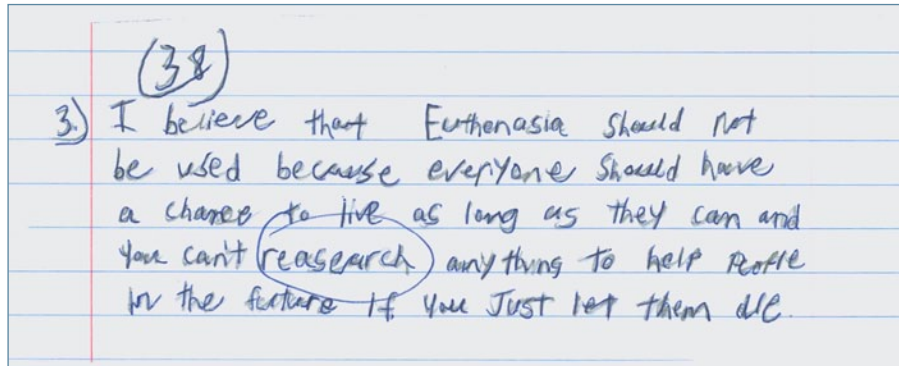 (38)
3.) I believe that Euthenasia should not
be used because everyone should have
a chance to live as long as they can and
you can't reasearch anything to help people
in the future if you Just let them die.